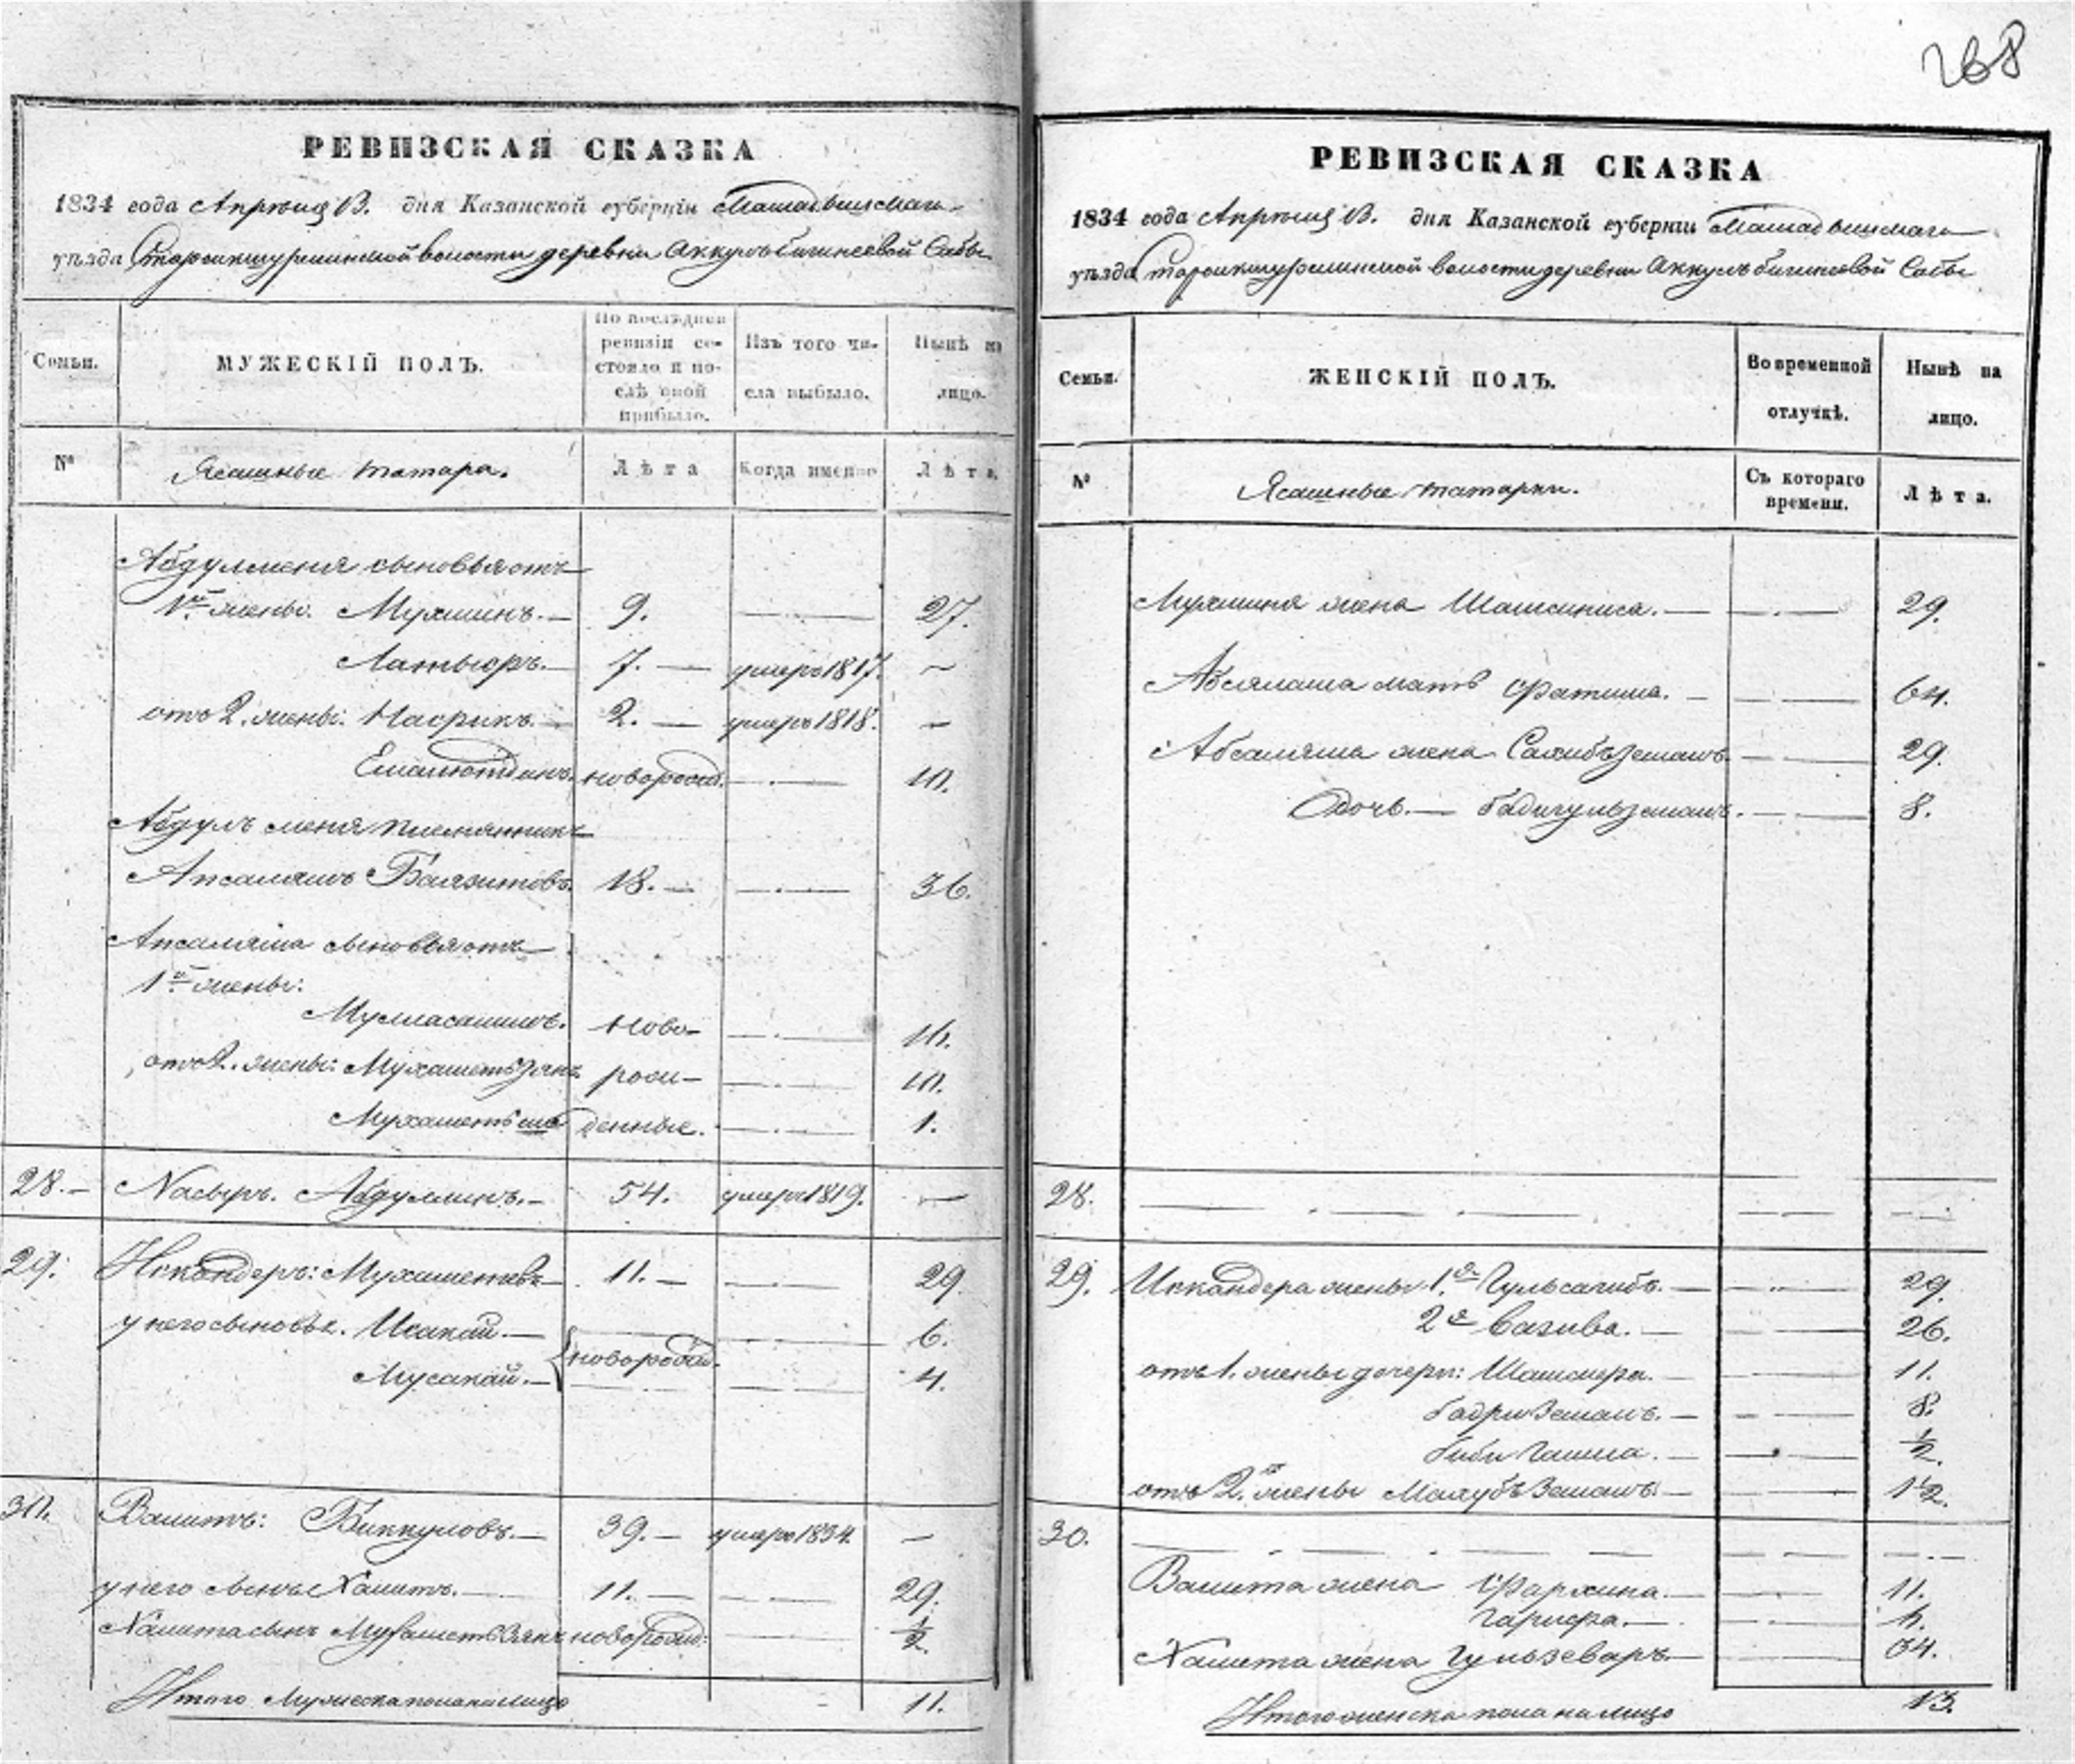 268
РЕВИЗСКАЯ СКАЗКА
1834 года Апреля 13. дня Казанской губернiи Мамадышскаго
уѣзда Староикшурминской волости деревни Аккулъ бигинеевой Сабы
Семьи.
МУЖЕСКIЙ ПОЛЪ.
По послѣдней ревизiи состояло и послѣ оной прибыло.
Изъ того числа выбыло.
Нынѣ на лицо.
№
Ясашные татара.
Лѣта
Когда именно
Лѣта.
Абдулменя сыновья отъ
1й жены. Мухминъ. — 9. — 27.
7. — умеръ 1817. ~
отъ 2. жены: Насрикъ. — 2. — умеръ 1818. —
новорожд. — 10.
Абдулъ меня племянникъ
Апсалямъ Баязитовъ. 18. — 36.
Апсаляма сыновья отъ
1й жены:
Ново-
отъ 2. жены: Мухаметьзянъ рож- — 10.
Мухаметьша денные. — 1.
28. — Насыръ. Абдуллинъ. — 54. умеръ 1819. —
29. Искандеръ: Мухаметевъ — 11. — 29.
у него сыновья. Исакай. — 6.
Мусакай. — новорожд. — 4.
30. Вамитъ: Биккуловъ. — 39. — умеръ 1834. —
у него сынъ Хамитъ. — 11. — 29.
Хамита сынъ Мухаметьзянъ новорожд: — ½.
Итого мужеска пола на лицо 11.
РЕВИЗСКАЯ СКАЗКА
1834 года Апреля 13. дня Казанской губернiи Мамадышскаго
уѣзда Староикшурминской волости деревни Аккулъ бигинеевой Сабы
Семьи.
ЖЕНСКIЙ ПОЛЪ.
Во временной отлучкѣ.
Нынѣ на лицо.
№
Ясашные татарки.
Съ котораго времени.
Лѣта.
Мухмина жена Шамсиниса. — 29.
Абсаляма мать Фатима. — 64.
Абсаляма жена Сахибъземалъ — 29.
дочь. — Бадигульземалъ. — 8.
28.
29. Искандера жены 1я Гульсагибъ. — 29.
2я Вазива. — 26.
отъ 1. жены дочери: — 11.
Бадриземалъ. — 8.
— ½.
отъ 2й жены Махубъземалъ. — 1½.
30.
Вамита жена Фархина. — 11.
Гарифа. —
Хамита жена Гульзеваръ. — 34.
Итого женска пола на лицо 13.